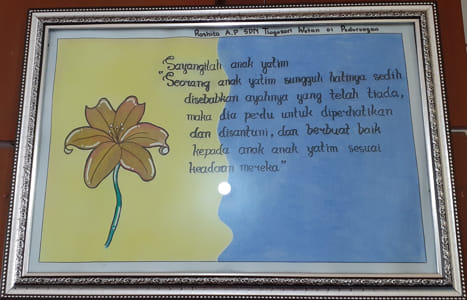 Roshita A.P SDN Tlogosari Wetan 01 Pedurungan
Sayangilah anak yatim
"Seorang anak yatim sungguh hatinya sedih
disebabkan ayahnya yang telah tiada,
maka dia perlu untuk diperhatikan
dan disantuni, dan berbuat baik
kepada anak anak yatim sesuai
keadaan mereka"